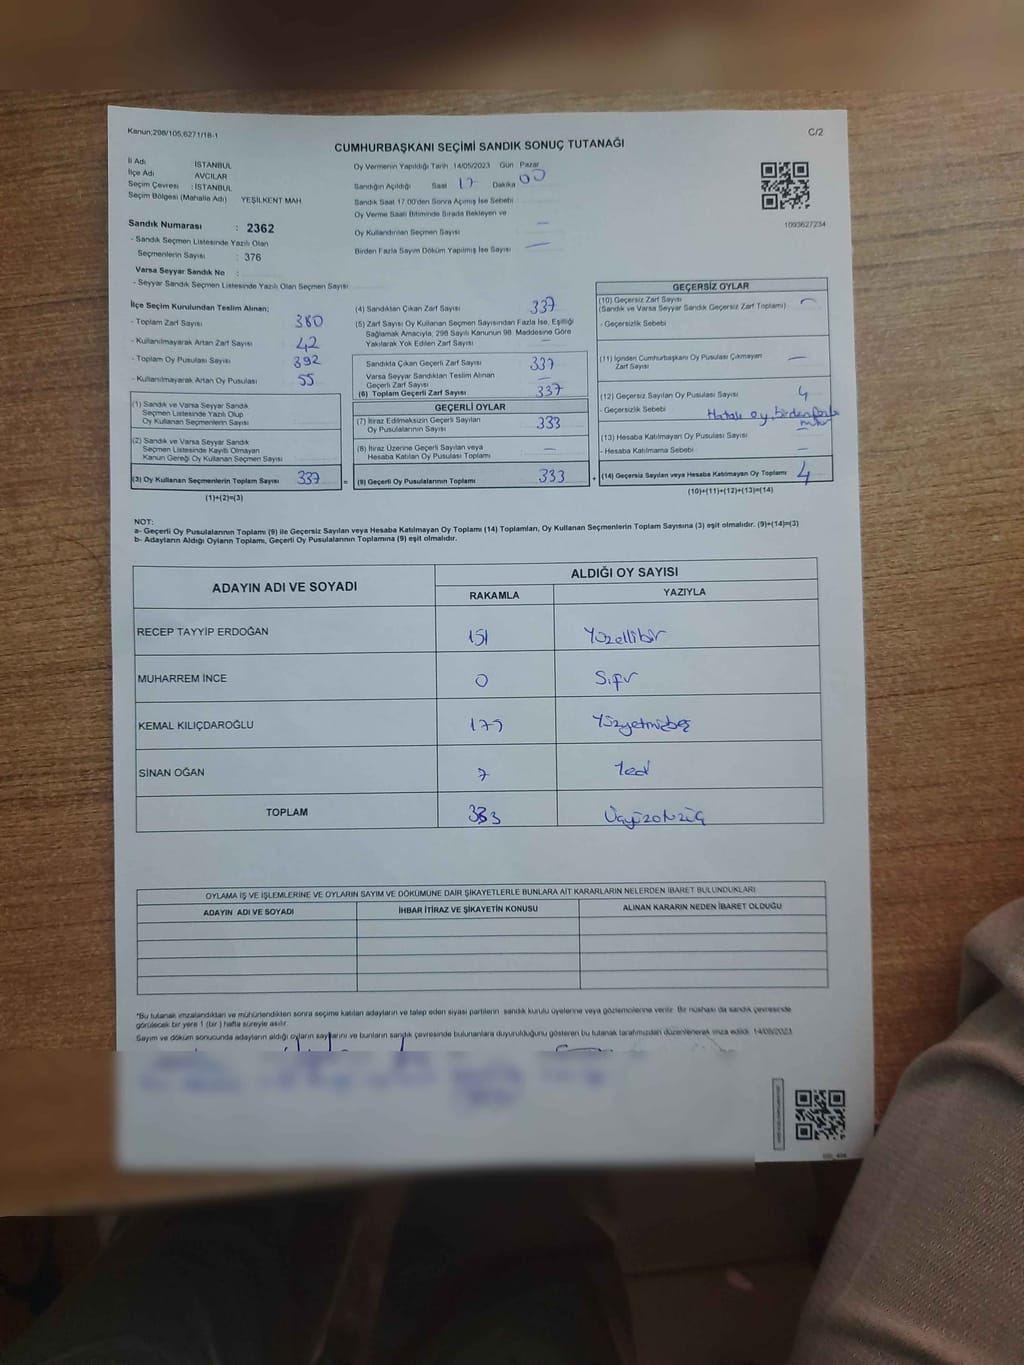 Kanun;298/105,6271/18-1
C/2
CUMHURBAŞKANI SEÇİMİ SANDIK SONUÇ TUTANAĞI
İl Adı İSTANBUL
İlçe Adı AVCILAR
Seçim Çevresi : İSTANBUL
Seçim Bölgesi (Mahalle Adı) YEŞİLKENT MAH.
Sandık Numarası : 2362
- Sandık Seçmen Listesinde Yazılı Olan
Seçmenlerin Sayısı : 376
Varsa Seyyar Sandık No :
- Seyyar Sandık Seçmen Listesinde Yazılı Olan Seçmen Sayısı:
Oy Vermenin Yapıldığı Tarih :14/05/2023 Gün : Pazar
Sandığın Açıldığı Saat 17 Dakika 00
Sandık Saat 17.00'den Sonra Açımış İse Sebebi
Oy Verme Saati Bitiminde Sırada Bekleyen ve
Oy Kullandırılan Seçmen Sayısı —
Birden Fazla Sayım Döküm Yapılmış İse Sayısı —
1093627234
İlçe Seçim Kurulundan Teslim Alınan;
- Toplam Zarf Sayısı 380
- Kullanılmayarak Artan Zarf Sayısı 42
- Toplam Oy Pusulası Sayısı 392
- Kullanılmayarak Artan Oy Pusulası 55
(1) Sandık ve Varsa Seyyar Sandık
Seçmen Listesinde Yazılı Olup
Oy Kullanan Seçmenlerin Sayısı
(2) Sandık ve Varsa Seyyar Sandık
Seçmen Listesinde Kayıtlı Olmayan
Kanun Gereği Oy Kullanan Seçmen Sayısı
(3) Oy Kullanan Seçmenlerin Toplam Sayısı 337
(1)+(2)=(3)
=
(4) Sandıktan Çıkan Zarf Sayısı 337
(5) Zarf Sayısı Oy Kullanan Seçmen Sayısından Fazla İse, Eşitliği
Sağlamak Amacıyla, 298 Sayılı Kanunun 98. Maddesine Göre
Yakılarak Yok Edilen Zarf Sayısı —
Sandıkta Çıkan Geçerli Zarf Sayısı 337
Varsa Seyyar Sandıktan Teslim Alınan
Geçerli Zarf Sayısı —
(6) Toplam Geçerli Zarf Sayısı 337
GEÇERLİ OYLAR
(7) İtiraz Edilmeksizin Geçerli Sayılan
Oy Pusulalarının Sayısı 333
(8) İtiraz Üzerine Geçerli Sayılan veya
Hesaba Katılan Oy Pusulası Toplamı —
(9) Geçerli Oy Pusulalarının Toplamı 333
+
GEÇERSİZ OYLAR
(10) Geçersiz Zarf Sayısı
(Sandık ve Varsa Seyyar Sandık Geçersiz Zarf Toplamı) —
- Geçersizlik Sebebi
(11) İçinden Cumhurbaşkanı Oy Pusulası Çıkmayan
Zarf Sayısı —
(12) Geçersiz Sayılan Oy Pusulası Sayısı 4
- Geçersizlik Sebebi Hatalı oy, birden fazla
mühür
(13) Hesaba Katılmayan Oy Pusulası Sayısı —
- Hesaba Katılmama Sebebi —
(14) Geçersiz Sayılan veya Hesaba Katılmayan Oy Toplamı 4
(10)+(11)+(12)+(13)=(14)
NOT:
a- Geçerli Oy Pusulalarının Toplamı (9) ile Geçersiz Sayılan veya Hesaba Katılmayan Oy Toplamı (14) Toplamları, Oy Kullanan Seçmenlerin Toplam Sayısına (3) eşit olmalıdır. (9)+(14)=(3)
b- Adayların Aldığı Oyların Toplamı, Geçerli Oy Pusulalarının Toplamına (9) eşit olmalıdır.
ADAYIN ADI VE SOYADI ALDIĞI OY SAYISI
RAKAMLA YAZIYLA
RECEP TAYYİP ERDOĞAN 151 Yüzellibir
MUHARREM İNCE 0 Sıfır
KEMAL KILIÇDAROĞLU 175 Yüzyetmişbeş
SİNAN OĞAN 7 Yedi
TOPLAM 333 Üçyüzotuzüç
OYLAMA İŞ VE İŞLEMLERİNE VE OYLARIN SAYIM VE DÖKÜMÜNE DAİR ŞİKAYETLERLE BUNLARA AİT KARARLARIN NELERDEN İBARET BULUNDUKLARI
ADAYIN ADI VE SOYADI İHBAR İTİRAZ VE ŞİKAYETİN KONUSU ALINAN KARARIN NEDEN İBARET OLDUĞU
*Bu tutanak imzalandıktan ve mühürlendikten sonra seçime katılan adayların ve talep eden siyasi partilerin sandık kurulu üyelerine veya gözlemcilerine verilir. Bir nüshası da sandık çevresinde
görülecek bir yere 1 (bir ) hafta süreyle asılır.
Sayım ve döküm sonucunda adayların aldığı oyların sayılarını ve bunların sandık çevresinde bulunanlara duyurulduğunu gösteren bu tutanak tarafımızdan düzenlenerek imza edildi. 14/05/2023